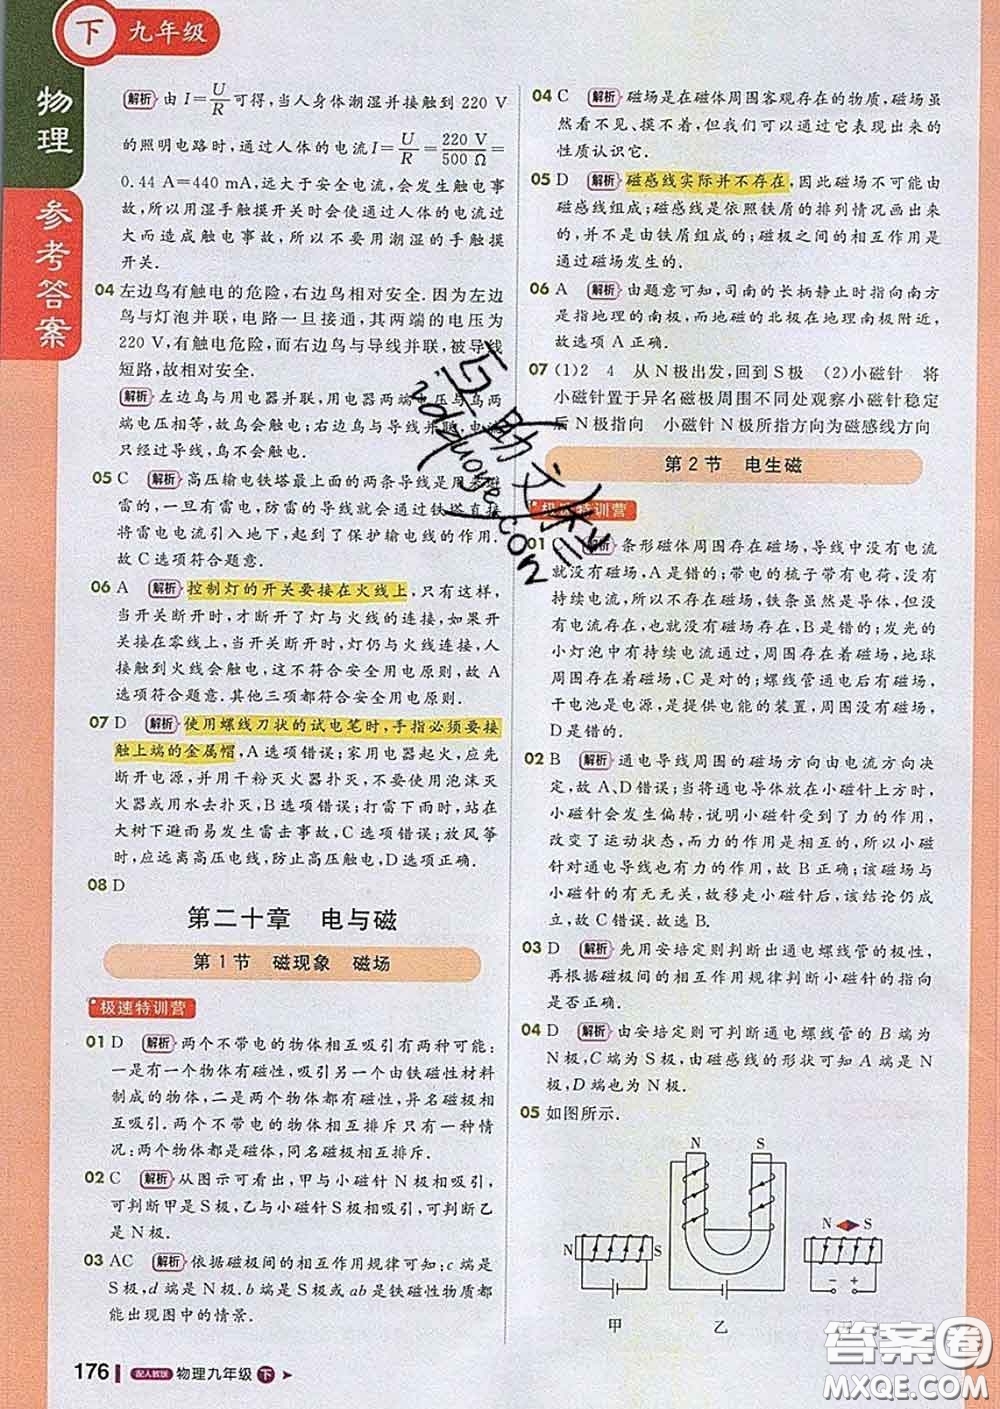 下 九年级
物理
参考答案
解析 由 I=U/R 可得,当人身体潮湿并接触到 220 V
的照明电路时,通过人体的电流 I=U/R=220 V/500 Ω=
0.44 A=440 mA,远大于安全电流,会发生触电事
故,所以用湿手触摸开关时会使通过人体的电流过
大而造成触电事故,所以不要用潮湿的手触摸
开关.
04 左边鸟有触电的危险,右边鸟相对安全.因为左边
鸟与灯泡并联,电路一旦接通,其两端的电压为
220 V,有触电危险,而右边鸟与导线并联,被导线
短路,故相对安全.
解析 左边鸟与用电器并联,用电器两端电压与鸟两
端电压相等,故鸟会触电;右边鸟与导线并联,电流
只经过导线,鸟不会触电.
05 C 解析 高压输电铁塔最上面的两条导线是用来防
雷的,一旦有雷电,防雷的导线就会通过铁塔直接
将雷电电流引入地下,起到了保护输电线的作用.
故 C 选项符合题意.
06 A 解析 控制灯的开关要接在火线上,只有这样,
当开关断开时,才断开了灯与火线的连接,如果开
关接在零线上,当开关断开时,灯仍与火线连接,人
接触到火线会触电,这不符合安全用电原则.故 A
选项符合题意.其他三项都符合安全用电原则.
07 D 解析 使用螺线刀状的试电笔时,手指必须要接
触上端的金属帽,A 选项错误;家用电器起火,应先
断开电源,并用干粉灭火器扑灭,不要使用泡沫灭
火器或用水去扑灭,B 选项错误;打雷下雨时,站在
大树下避雨易发生雷击事故,C 选项错误;放风筝
时,应远离高压电线,防止高压触电,D 选项正确.
08 D
第二十章 电与磁
第 1 节 磁现象 磁场
极速特训营
01 D 解析 两个不带电的物体相互吸引有两种可能:
一是有一个物体有磁性,吸引另一个由铁磁性材料
制成的物体,二是两个物体都有磁性,异名磁极相
互吸引;两个不带电的物体相互排斥只有一种情
况:两个物体都有磁体,同名磁极相互排斥.
02 C 解析 从图示可看出,甲与小磁针 N 极相吸引,
可判断甲是 S 极,乙与小磁针 S 极相吸引,可判断乙
是 N 极.
03 AC 解析 依据磁极间的相互作用规律可知:c 端是
S 极,d 端是 N 极.b 端是 S 极或 ab 是铁磁性物质都
能出现图中的情景.
176 配人教版 物理九年级 下
04 C 解析 磁场是在磁体周围客观存在的物质,磁场虽
然看不见、摸不着,但我们可以通过它表现出来的
性质认识它.
05 D 解析 磁感线实际并不存在,因此磁场不可能由
磁感线组成;磁感线是依照铁屑的排列情况画出来
的,并不是由铁屑组成的;磁极之间的相互作用是
通过磁场发生的.
06 A 解析 由题意可知,司南的长柄静止时指向南方
是指地理的南极,而地磁的北极在地理南极附近,
故选项 A 正确.
07 (1)2 4 从 N 极出发,回到 S 极 (2)小磁针 将
小磁针置于异名磁极周围不同处观察小磁针稳定
后 N 极指向 小磁针 N 极所指方向为磁感线方向
第 2 节 电生磁
极速特训营
01 解析 条形磁体周围存在磁场,导线中没有电流
就没有磁场,A 是错的;带电的梳子带有电荷,没有
持续电流,所以不存在磁场,铁条虽然是导体,但没
有通电周围没有磁场存在,B 是错的;发光的
小灯泡中有持续电流通过,周围存在着磁场,地球
周围存在着磁场,C 是对的;螺线管通电后有磁场,
干电池是电源,是提供电能的装置,周围没有磁场,
D 是错的.
02 B 解析 通电导线周围的磁场方向由电流方向决
定,故 A、D 错误;当将通电导体放在小磁针上方时,
小磁针会发生偏转,说明小磁针受到了力的作用,
改变了运动状态,而力的作用是相互的,所以小磁
针对通电导线也有力的作用,故 B 正确;该磁场与
小磁针的有无无关,故移走小磁针后,该结论仍成
立,故 C 错误.故选 B.
03 D 解析 先用安培定则判断出通电螺线管的极性,
再根据磁极间的相互作用规律判断小磁针的指向
是否正确.
04 D 解析 由安培定则可判断通电螺线管的 B 端为
N 极,C 端为 S 极,由磁感线的形状可知 A 端是 N
极,D 端也为 N 极.
05 如图所示.
N S
N S
N S
甲 乙
互助文库
zdzuoye.com
答案圈
MXQE.COM